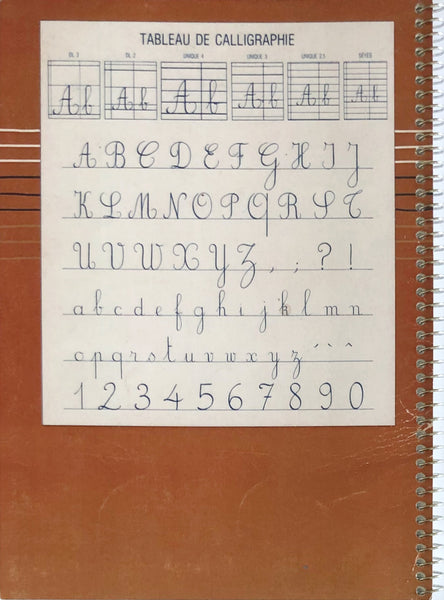 TABLEAU DE CALLIGRAPHIE
DL 3 DL 2 UNIQUE 4 UNIQUE 3 UNIQUE 2,5 SÉYES
A b A b A b A b A b A b
A B C D E F G H I J
K L M N O P Q R S T
U V W X Y Z , ; ? !
a b c d e f g h i j k l m n
o p q r s t u v w x y z ´ ` ^
1 2 3 4 5 6 7 8 9 0